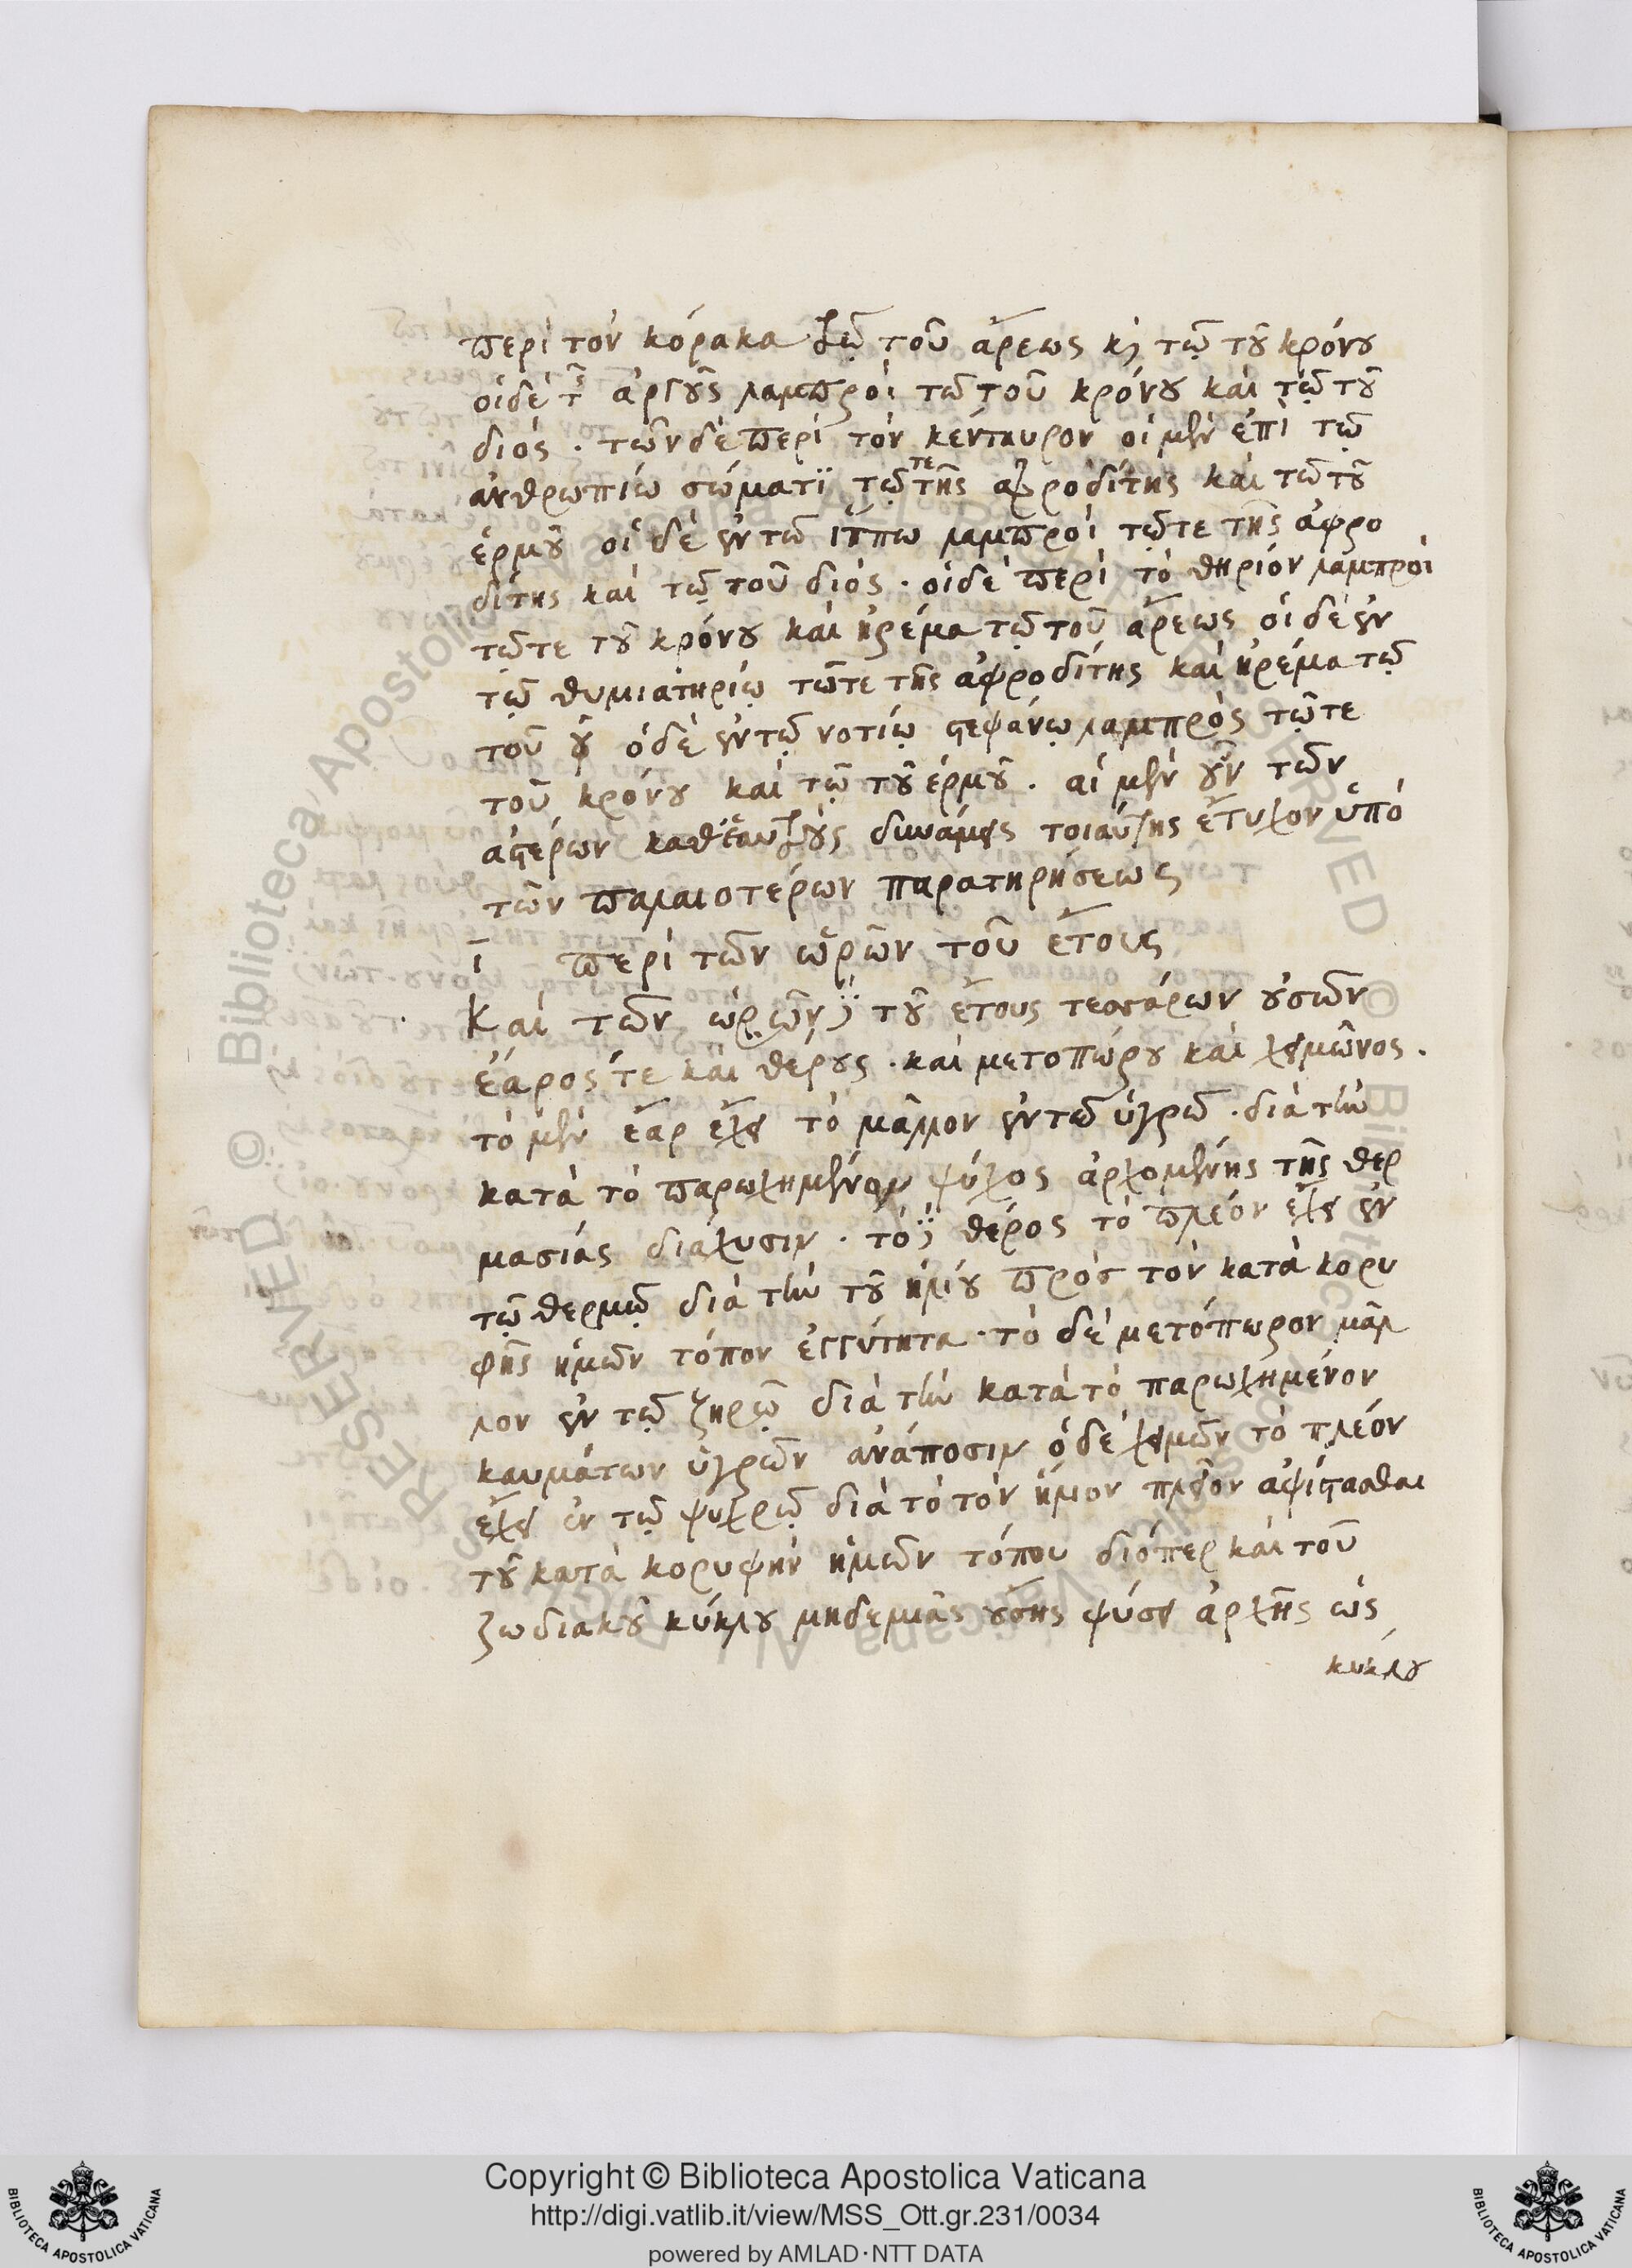 περὶ τὸν κόρακα τῶ τοῦ ἄρεως κ τῶ τοῦ κρόνου
οἱ δὲ τς ἀργοῦς λαμπροὶ τῶ τοῦ κρόνου καὶ τῶ τοῦ
διός. τῶν δὲ περὶ τὸν κένταυρον οἱ μὲν ἐπὶ τῶ
ἀνθρωπίω σώματϊ τῶ τε τῆς ἀφροδίτης καὶ τῶ τοῦ
ἑρμοῦ οἱ δὲ ἐν τῶ ἵππω λαμπροὶ τῶ τε τῆς ἀφρο
δίτης καὶ τῶ τοῦ διός. οἱ δὲ περὶ τὸ θηρίον λαμπροὶ
τῶ τε τοῦ κρόνου καὶ ἠρέμα τῶ τοῦ ἄρεως οἱ δὲ ἐν
τῶ θυμιατηρίω τῶ τε τῆς ἀφροδίτης καὶ ἠρέμα τῶ
τοῦ ὁ δὲ ἐν τῶ νοτίω στεφάνω λαμπρὸς τῶ τε
τοῦ κρόνου καὶ τῶ τοῦ ἑρμοῦ. αἱ μὲν οὖν τῶν
ἀστέρων καθ' ἑαυτοὺς δυνάμεις τοιαύτης ἔτυχον ὑπὸ
τῶν παλαιοτέρων παρατηρήσεως
ι περὶ τῶν ὡρῶν τοῦ ἔτους
Καὶ τῶν ὡρῶν τοῦ ἔτους τεσσάρων οὐσῶν
ἔαρός τε καὶ θέρους. καὶ μετοπώρου καὶ χειμῶνος.
τὸ μὲν ἔαρ ἔχει τὸ μᾶλλον ἐν τῶ ὑγρῶ. διὰ τὴν
κατὰ τὸ παρωχημένον ψύχος ἀρχομένης τῆς θερ
μασίας διάχυσιν. τὸ θέρος τὸ πλέον ἔχει ἐν
τῶ θερμῶ διὰ τὴν τοῦ ἡλίου πρὸς τὸν κατὰ κορυ
φῆς ἡμῶν τόπον ἐγγύτητα. τὸ δὲ μετόπωρον μᾶλ
λον ἐν τῶ ξηρῶ διὰ τὴν κατὰ τὸ παρωχημένον
καυμάτων ὑγρῶν ἀνάποσιν ὁ δὲ χειμῶν τὸ πλέον
ἔχει ἐν τῶ ψυχρῶ διὰ τὸ τὸν ἥλιον πλεῖον ἀφίστασθαι
τοῦ κατὰ κορυφὴν ἡμῶν τόπου διόπερ καὶ τοῦ
ζωδιακοῦ κύκλου μηδεμιᾶς οὔσης φύσει ἀρχῆς ὡς
κύκλου
Copyright © Biblioteca Apostolica Vaticana
http://digi.vatlib.it/view/MSS_Ott.gr.231/0034
powered by AMLAD·NTT DATA
BIBLIOTECA APOSTOLICA VATICANA
BIBLIOTECA APOSTOLICA VATICANA